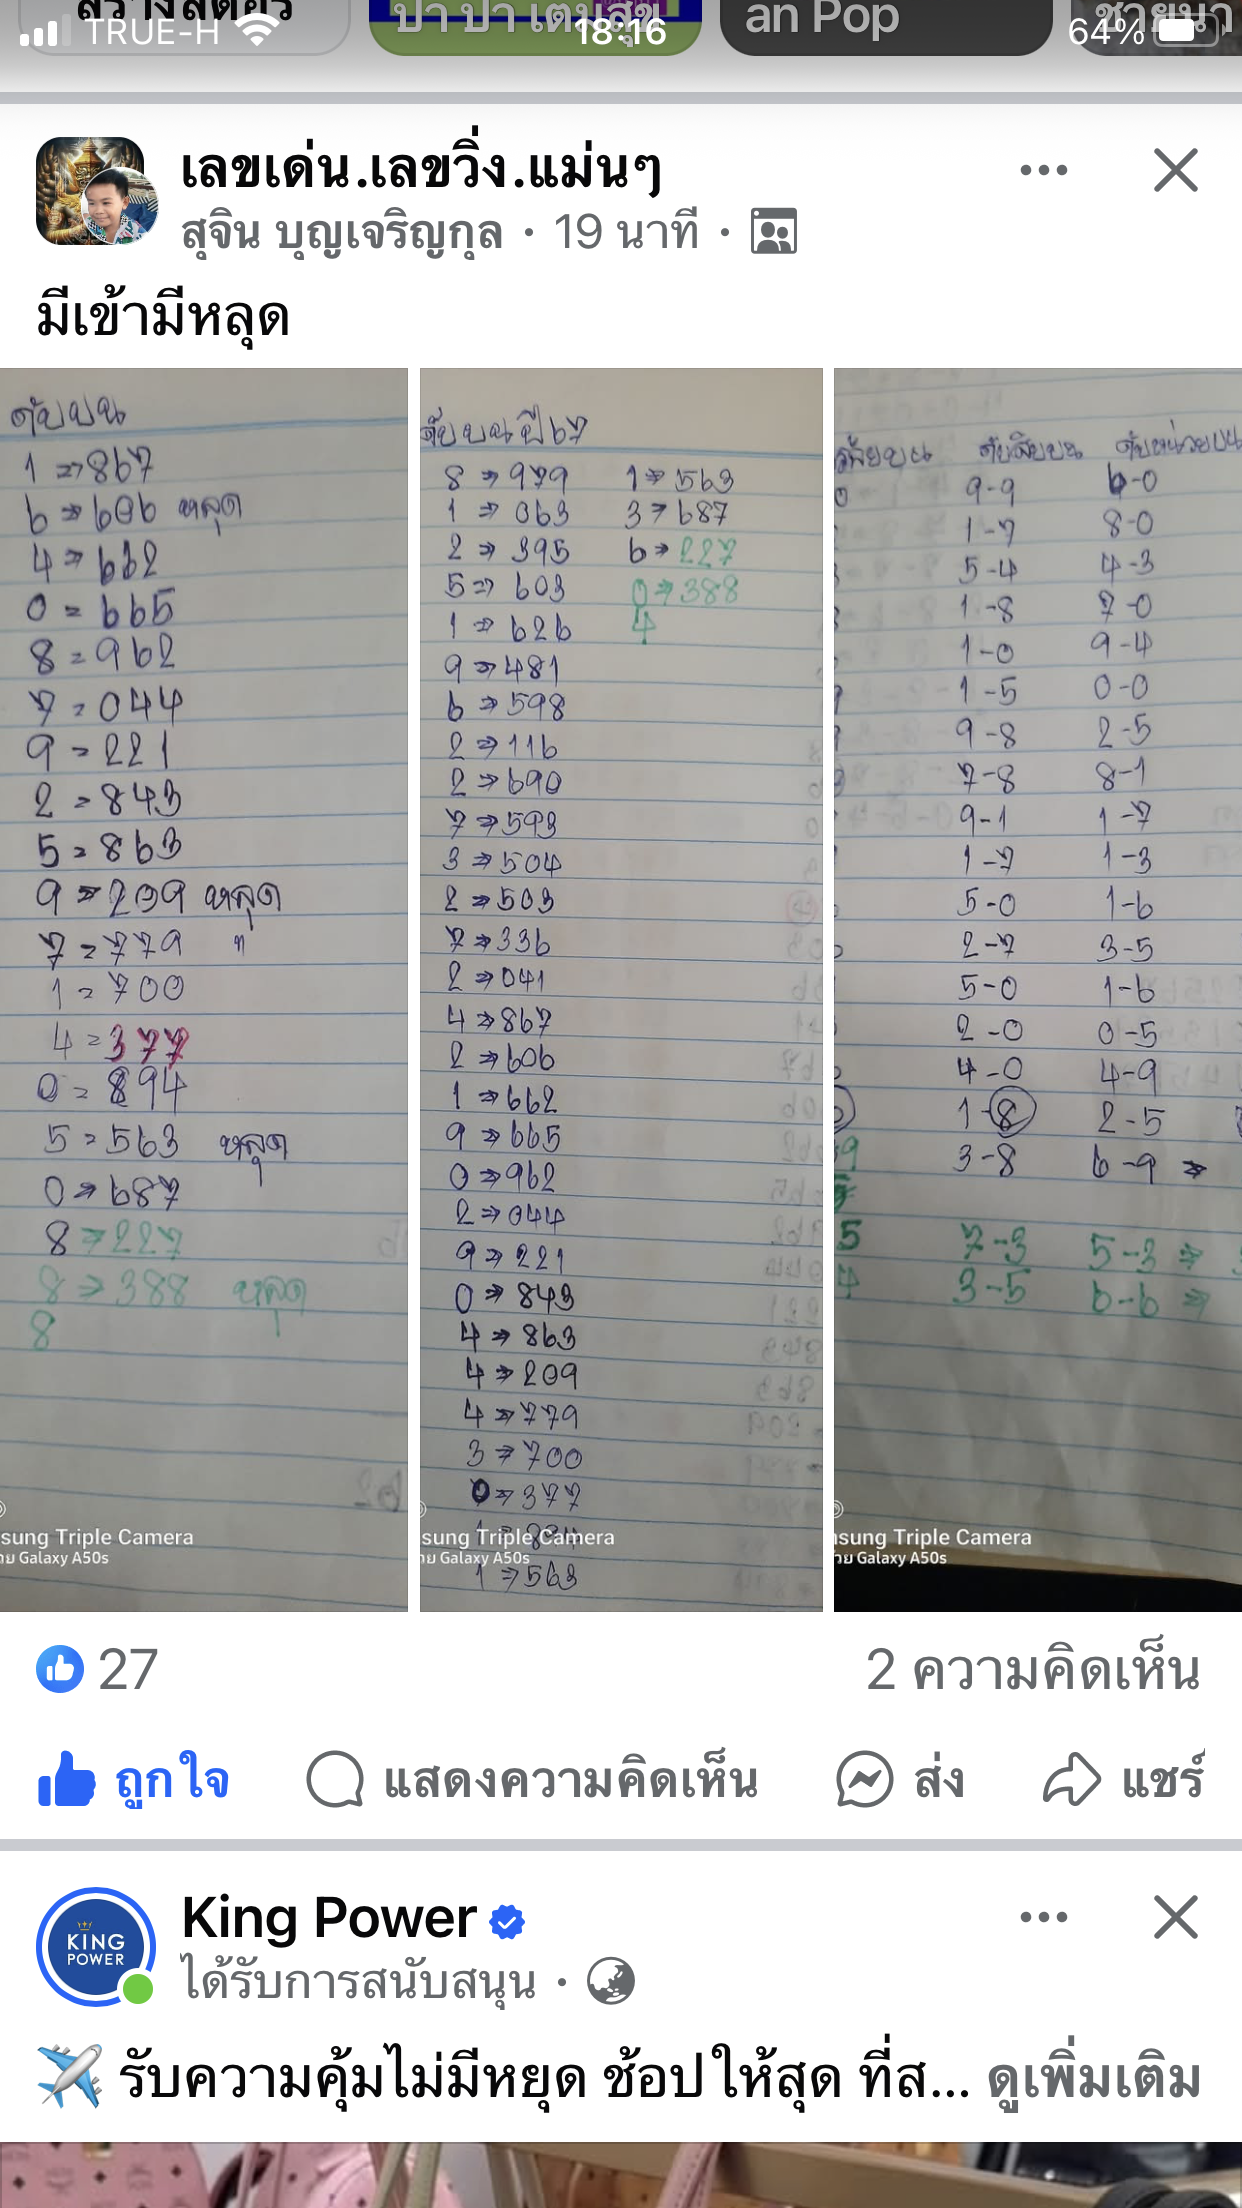 สร้างสตอรี่
ปา ปา เตมสุข
an Pop
TRUE-H
18:16
64%
เลขเด่น.เลขวิ่ง.แม่นๆ
สุจิน บุญเจริญกุล · 19 นาที ·
มีเข้ามีหลุด
ดับบน
1 => 867
6 => 606 หลุด
4 => 662
0 = 665
8 = 962
7 = 044
9 = 221
2 = 843
5 = 863
9 => 209 หลุด
7 = 779 "
1 = 700
4 = 377
0 = 894
5 = 563 หลุด
0 => 687
8 => 227
8 => 388 หลุด
8
sung Triple Camera
Galaxy A50s
ดับบนปี 67
8 => 979 1 => 563
1 => 063 3 => 687
2 => 395 6 => 227
5 => 603 0 => 388
1 => 626 4
9 => 481
6 => 598
2 => 116
2 => 690
7 => 593
3 => 504
2 => 503
7 => 336
2 => 041
4 => 867
2 => 606
1 => 662
9 => 665
0 => 962
2 => 044
9 => 221
0 => 843
4 => 863
4 => 209
4 => 779
3 => 700
0 => 377
1 => 894
1 => 563
sung Triple Camera
Galaxy A50s
ดับสิบบน ดับหน่วยบน
9-9 6-0
1-7 8-0
5-4 4-3
1-8 7-0
1-0 9-4
1-5 0-0
9-8 2-5
7-8 8-1
9-1 1-7
1-7 1-3
5-0 1-6
2-7 3-5
5-0 1-6
2-0 0-5
4-0 4-9
1-8 2-5
9 3-8 6-9 =>
5 7-3 5-3 =>
4 3-5 6-6 =>
sung Triple Camera
Galaxy A50s
27
2 ความคิดเห็น
ถูกใจ
แสดงความคิดเห็น
ส่ง
แชร์
KING
POWER
King Power
ได้รับการสนับสนุน ·
รับความคุ้มไม่มีหยุด ช้อปให้สุด ที่ส... ดูเพิ่มเติม